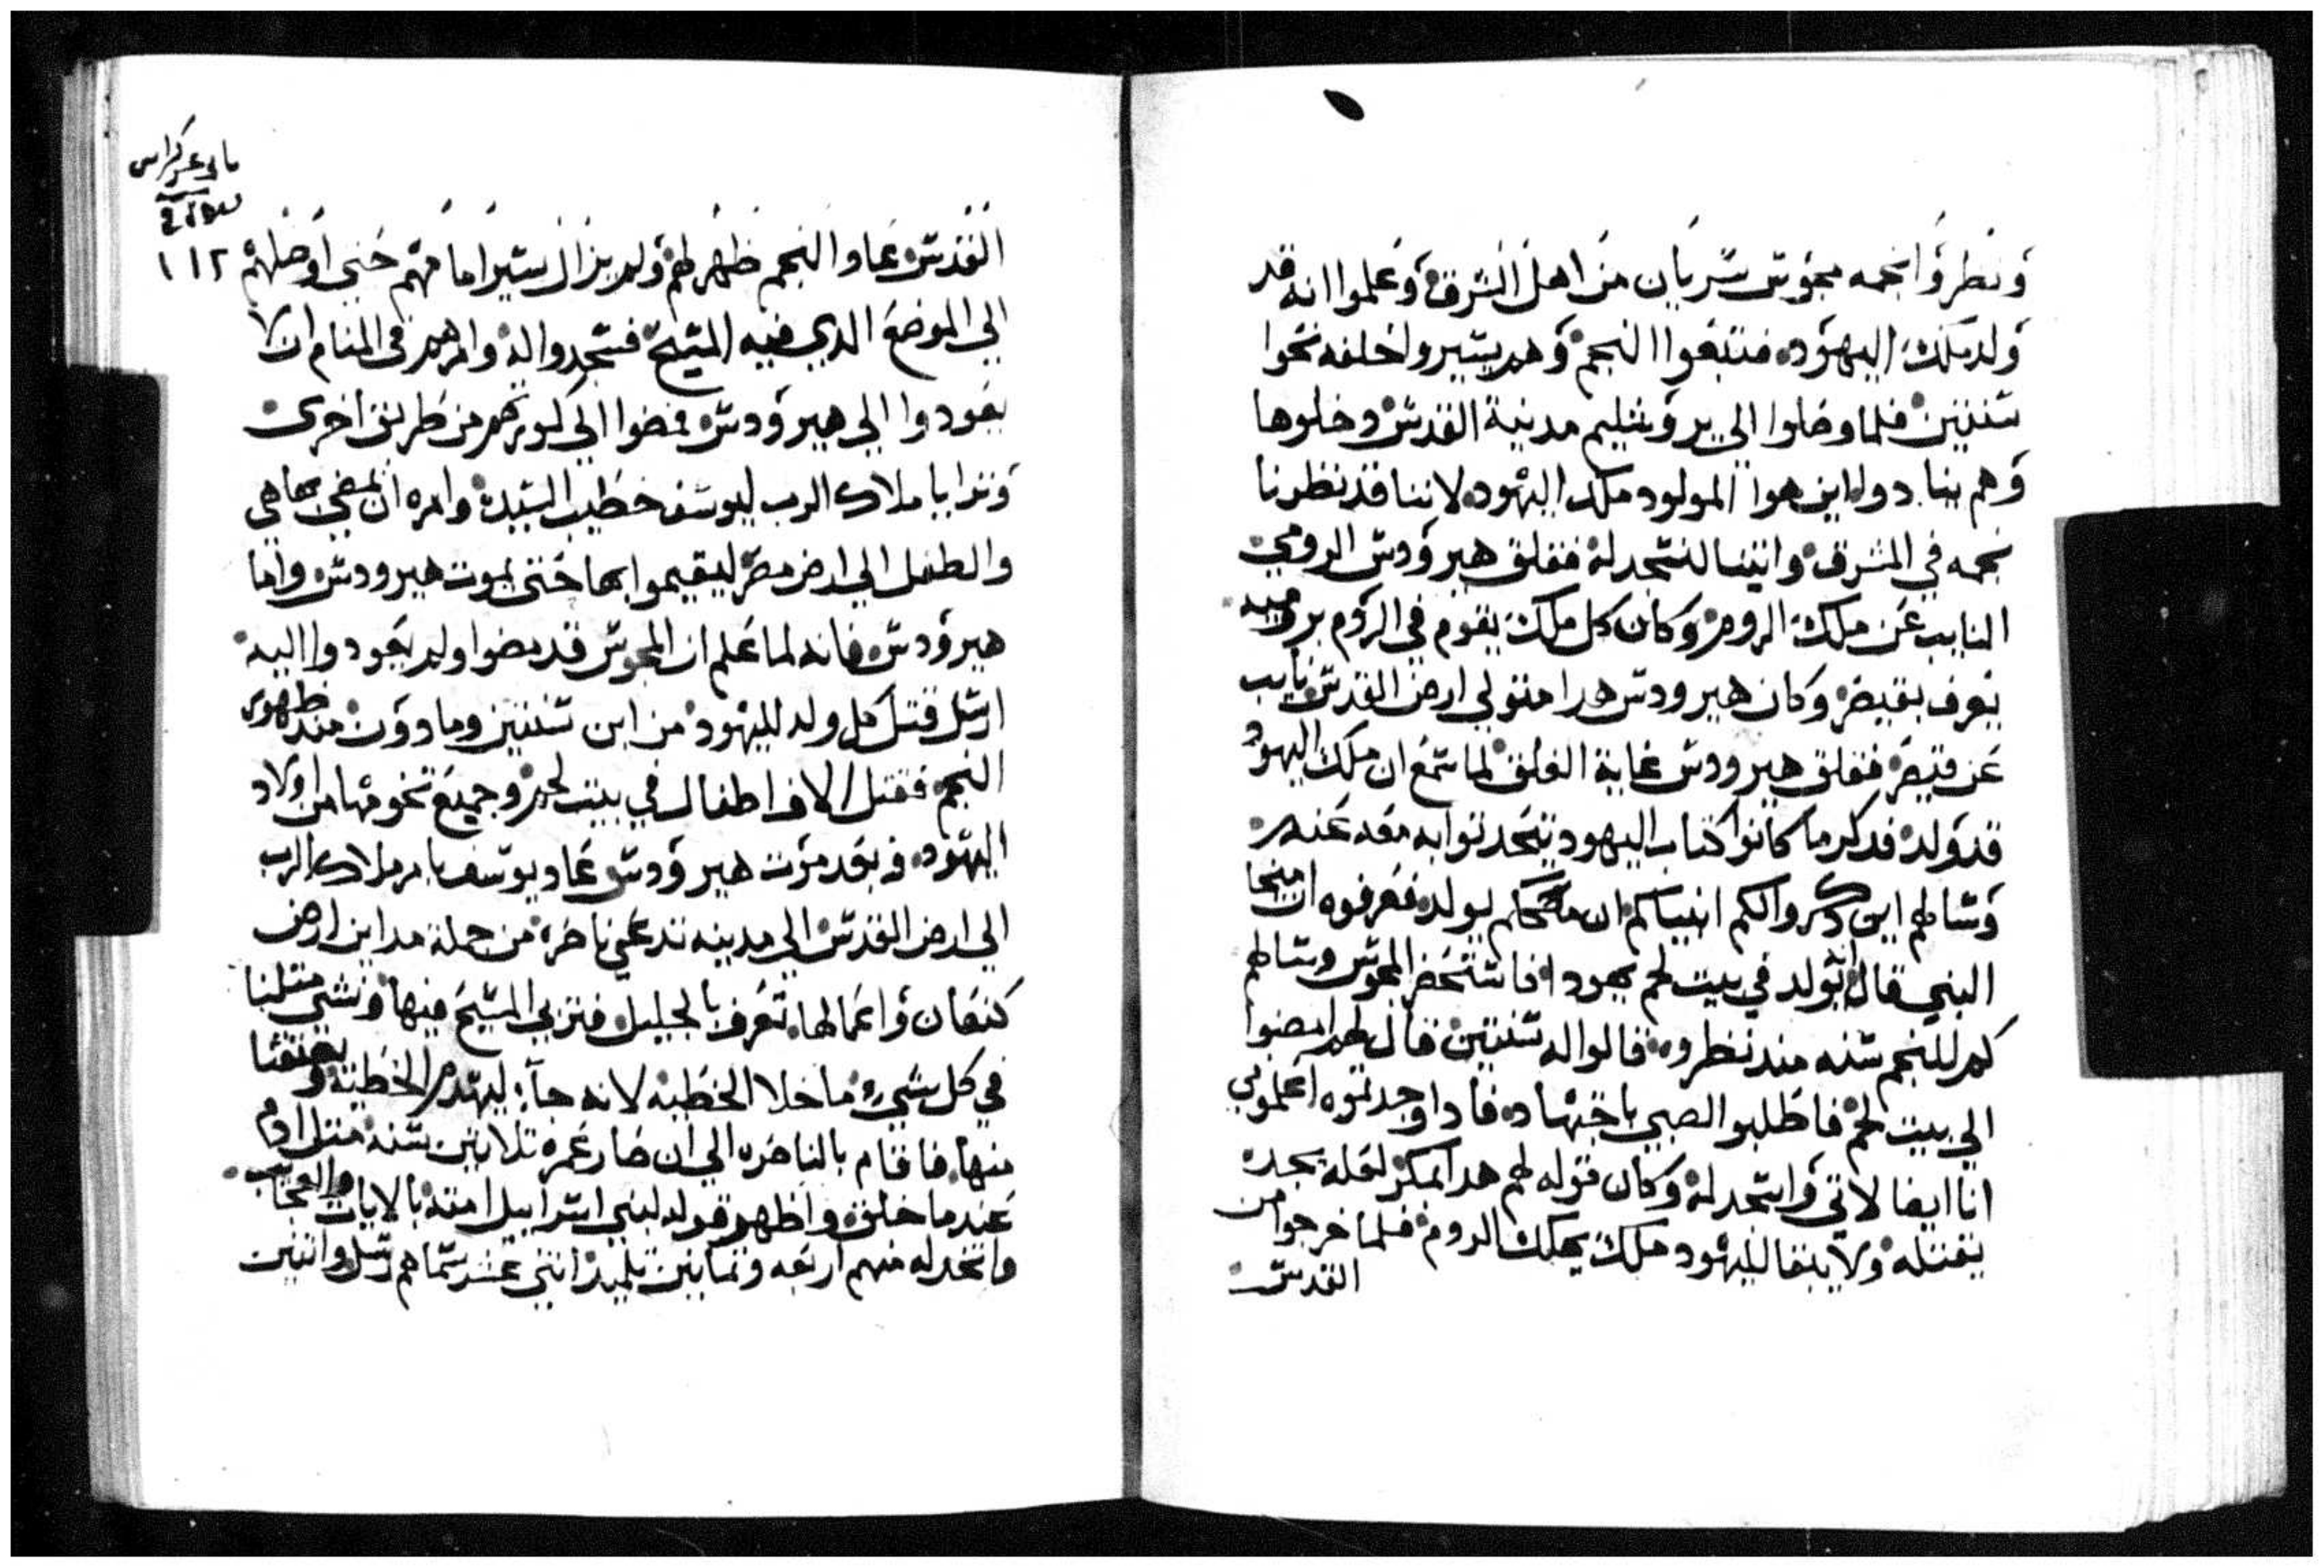 ونظروا نجمه مجوس سريان من اهل الشرق وعلموا انه قد
ولد ملك اليهود فتتبعوا النجم وهم يسيروا خلفه نحوا
سنتين فلما وصلوا الي يروشليم مدينة القدس دخلوها
وهم ينادوا اين هوا المولود ملك اليهود لاننا قد نظرنا
نجمه في المشرق واتينا لنسجد له فقلق هيرودس الرومي
النايب عن ملك الروم وكان كل ملك يقوم في الروم برومية
يعرف بقيصر وكان هيرودس هدا متولي ارض القدس نايب
عن قيصر فقلق هيرودس غاية القلق لما سمع ان ملك اليهود
قد ولد فدكر ما كانوا كتاب اليهود يتحدتوا به معه عنه
وسالهم اين دكروا لكم انبياكم ان ملككم يولد فعرفوه ان ميخا
النبي قال انه يولد في بيت لحم يهودا فاستحضر المجوس وسالهم
كم للنجم سنه مند نظروه فقالوا له سنتين قال لهم امضوا
الي بيت لحم فاطلبوا الصبي باجتهاد فادا وجدتموه اعلموني
انا ايضا لاتي واسجد له وكان قوله لهم هدا بمكر لعله يجده
يقتله ولا يبقا لليهود ملك يملك الروم فلما خرجوا من
القدس
١١٢
القدس عاد النجم ظهر لهم ولم يزال يسير امامهم حتي اوصلهم
الي الموضع الدي فيه المسيح فسجدوا له وامرهم في المنام ان لا
يعودوا الي هيرودس فمضوا الي كورتهم من طريق اخري
وترايا ملاك الرب ليوسف خطيب السيدة وامره ان يمضي بها هي
والطفل الي ارض مصر ليقيموا بها حتي يموت هيرودس واما
هيرودس فانه لما علم ان المجوس قد مضوا ولم يعودوا اليه
ارسل قتل كل ولد لليهود من ابن سنتين وما دون مند ظهور
النجم فقتل الاف اطفال في بيت لحم وجميع تخومها من اولاد
اليهود وبعد موت هيرودس عاد يوسف بامر ملاك الرب
الي ارض القدس الي مدينه تدعي ناصره من جملة مداين ارض
كنعان واعمالها تعرف بالجليل فتربي المسيح فيها ونشي متلنا
في كل شيء ما خلا الخطيه لانه جاء ليهدم الخطية ويعتقنا
منها فاقام بالناصره الي ان صار عمره تلاتين سنه متل ادم
عندما خلق واظهر قوله لبني اسراييل امته بالايات والعجايب
واتخد له منهم اربعه وتمانين تلميد اتني عشر سماهم رسل واتنين